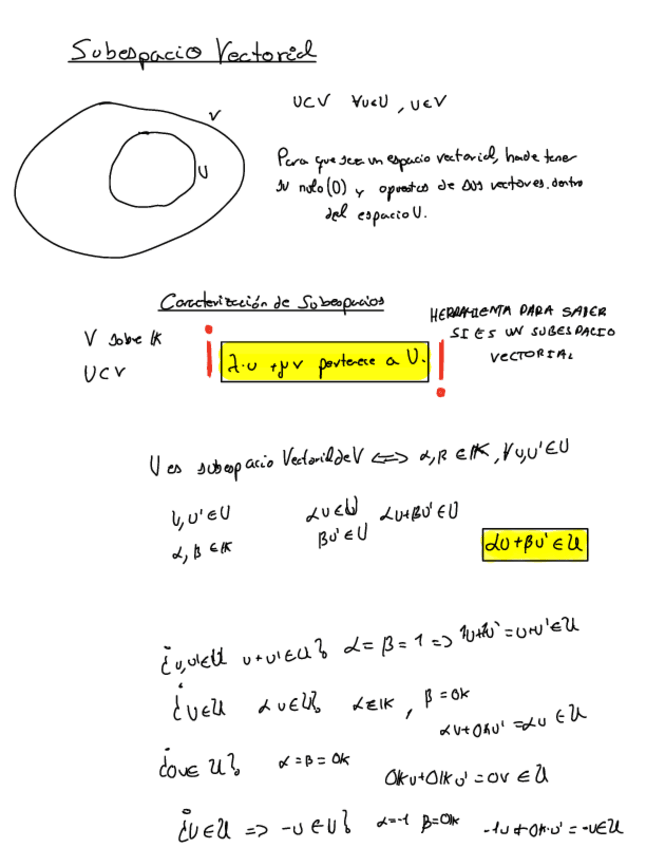 Subespacio Vectorial
U⊂V ∀u∈U, u∈V
V
U
Para que sea un espacio vectorial, ha de tener
su nulo (0) y opuestos de sus vectores. dentro
del espacio U.
Caracterización de Subespacios
V sobre K
U⊂V
¡ λ·u + μv pertenece a U. !
HERRAMIENTA PARA SABER
SI ES UN SUBESPACIO
VECTORIAL
U es subespacio Vectorial de V ⟺ α, β ∈ K, ∀u, u' ∈ U
u, u' ∈ U αu ∈ U αu+βu' ∈ U
α, β ∈ K βu' ∈ U
αu + βu' ∈ U
¿u, u' ∈ U u+u' ∈ U? α = β = 1 => 1u+1u' = u+u' ∈ U
¿u ∈ U αu ∈ U? α ∈ K, β = 0k
αu + 0ku' = αu ∈ U
¿0v ∈ U? α = β = 0k
0ku + 0ku' = 0v ∈ U
¿u ∈ U => -u ∈ U? α = -1 β = 0k -1u + 0k·u' = -u ∈ U